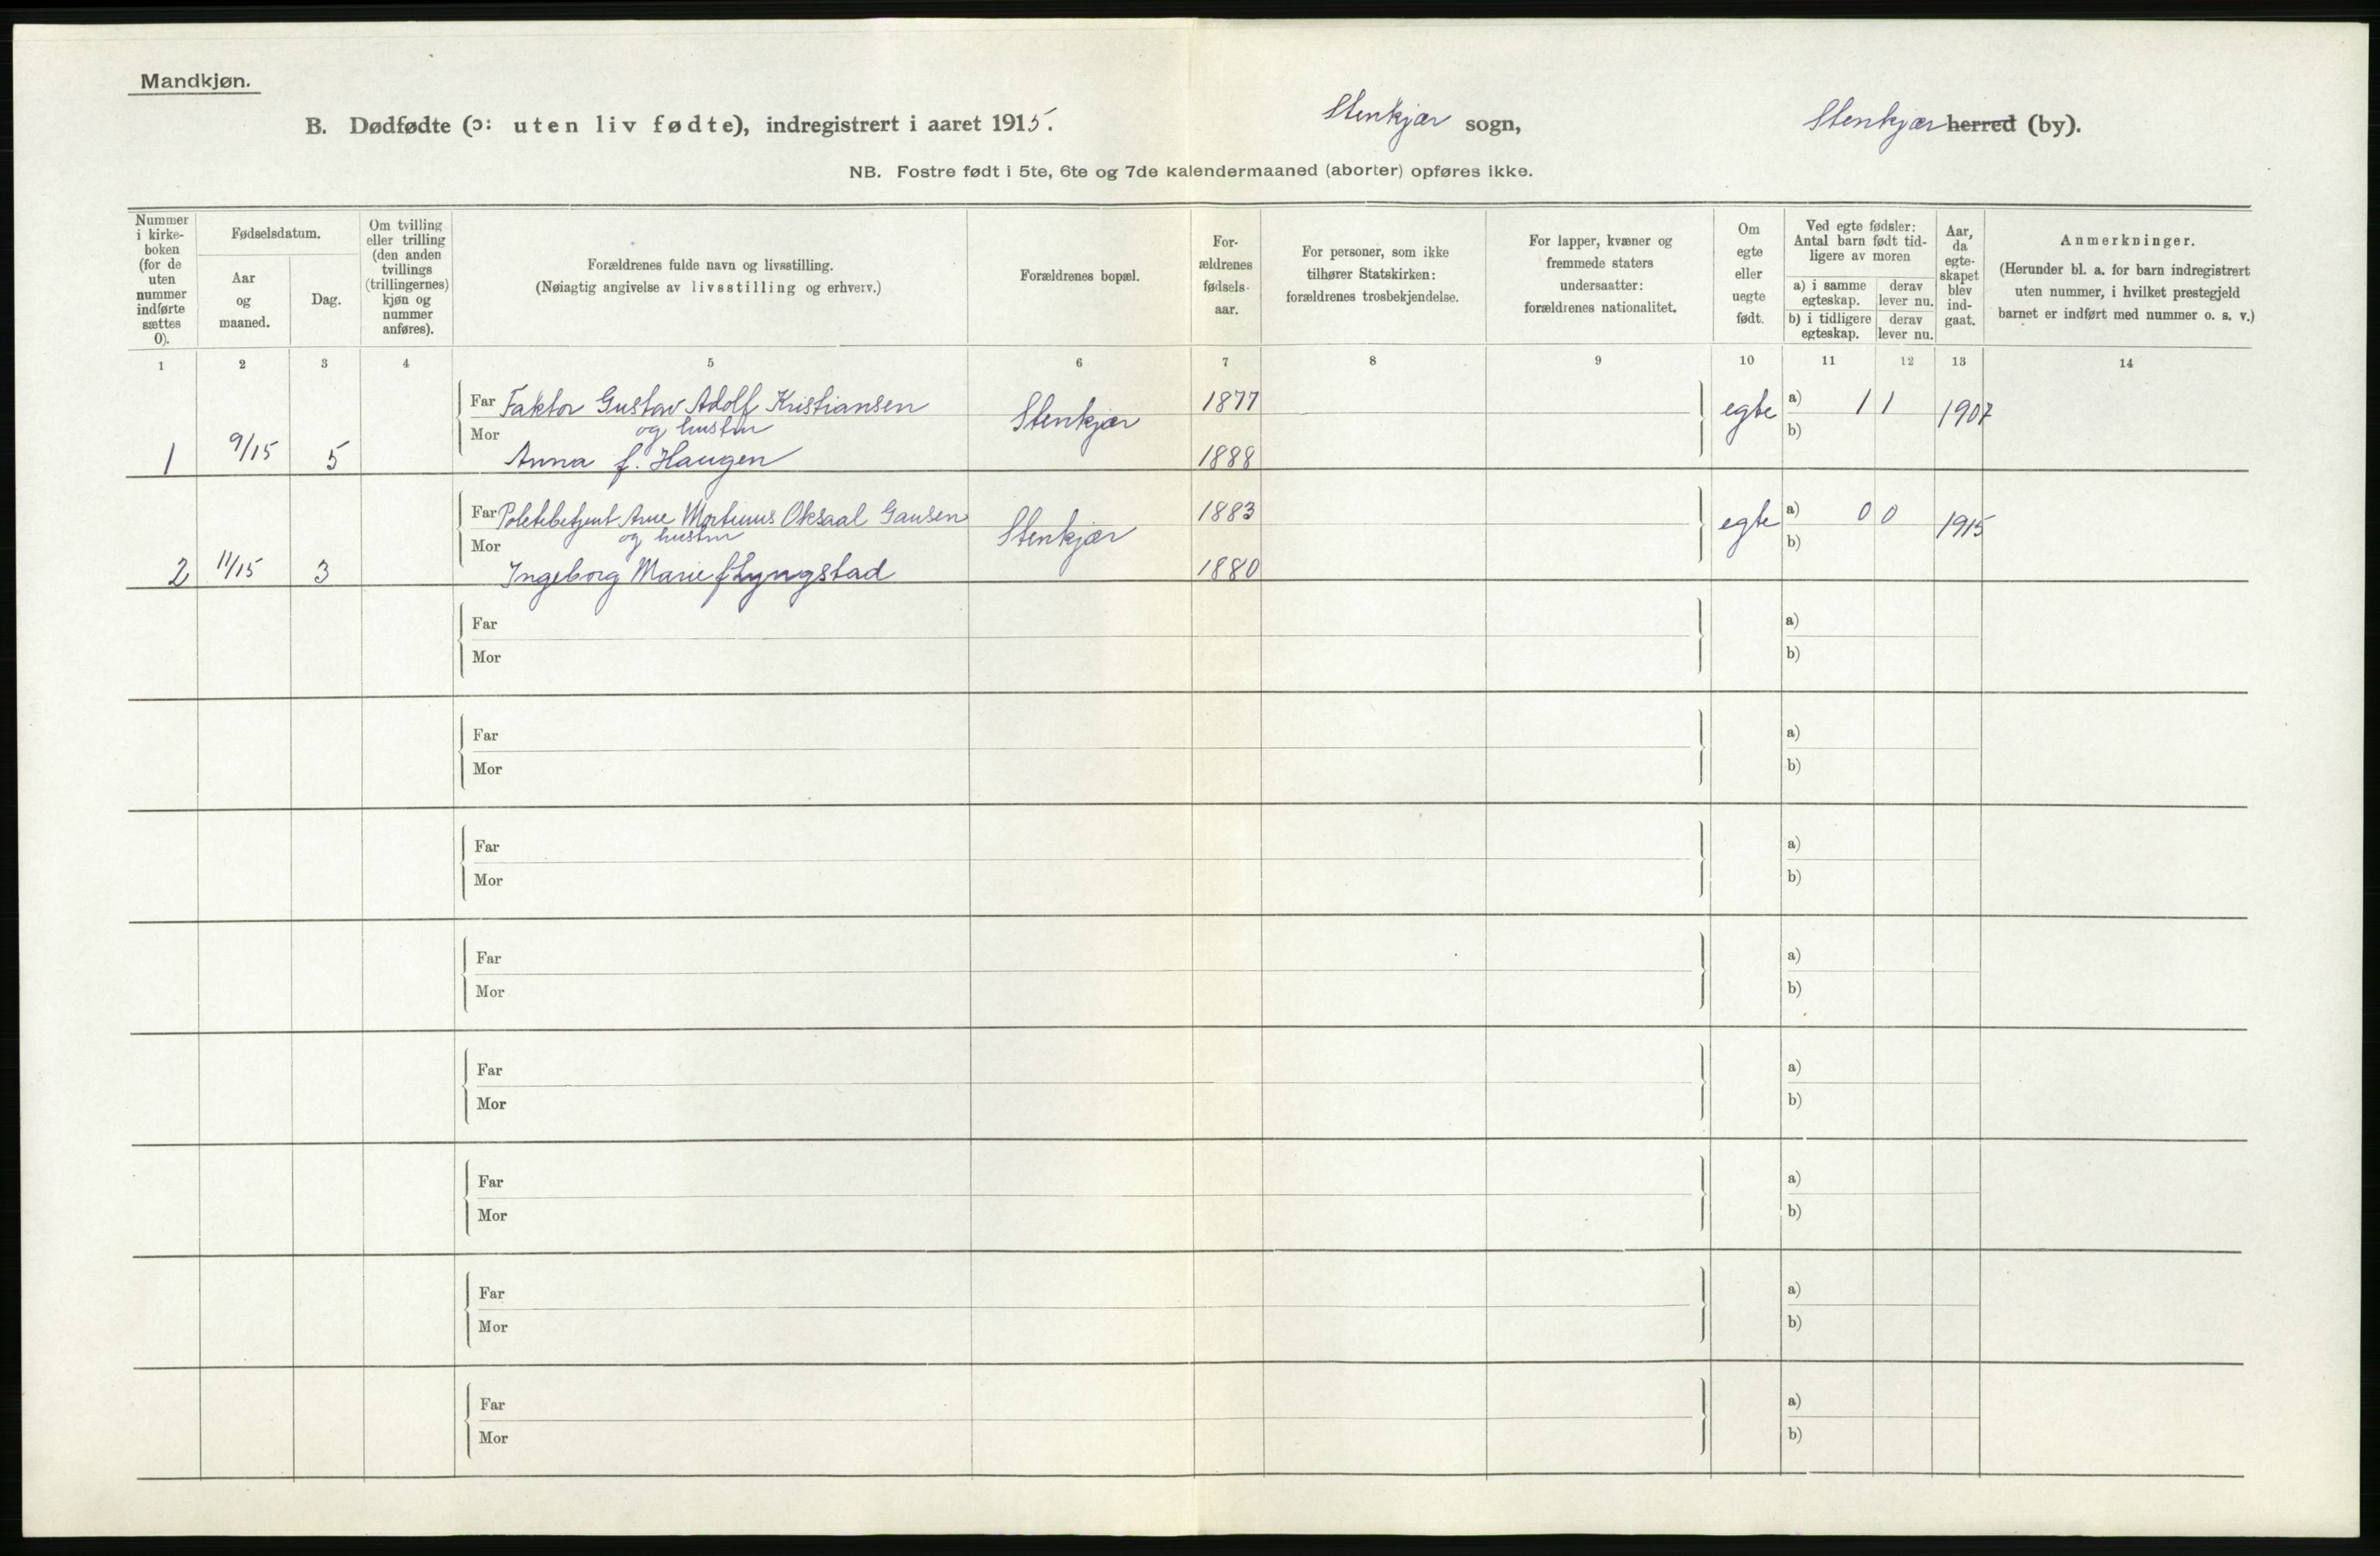 Mandkjøn.
B. Dødfødte (ɔ: uten liv fødte), indregistrert i aaret 1915. Stenkjær sogn, Stenkjær herred (by).
NB. Fostre født i 5te, 6te og 7de kalendermaaned (aborter) opføres ikke.
Nummer i kirke-boken (for de uten nummer indførte sættes 0).
Fødselsdatum.
Aar og maaned.
Dag.
Om tvilling eller trilling (den anden tvillings (trillingernes) kjøn og nummer anføres).
Forældrenes fulde navn og livsstilling.
(Nøiagtig angivelse av livsstilling og erhverv.)
Forældrenes bopæl.
For-ældrenes fødsels-aar.
For personer, som ikke tilhører Statskirken: forældrenes trosbekjendelse.
For lapper, kvæner og fremmede staters undersaatter: forældrenes nationalitet.
Om egte eller uegte født.
Ved egte fødsler: Antal barn født tid-ligere av moren
a) i samme egteskap.
derav lever nu.
b) i tidligere egteskap.
derav lever nu.
Aar, da egte-skapet blev ind-gaat.
Anmerkninger.
(Herunder bl. a. for barn indregistrert uten nummer, i hvilket prestegjeld barnet er indført med nummer o. s. v.)
1 2 3 4 5 6 7 8 9 10 11 12 13 14
Far Faktor Gustav Adolf Kristiansen Stenkjær 1877 egte a) 1 1 1907
Mor og hustru b)
1 9/15 5 Anna f. Haugen 1888
Far Politibetjent Arne Martinus Oksaal Gausen Stenkjær 1883 egte a) 0 0 1915
Mor og hustru b)
2 11/15 3 Ingeborg Marie f Lyngstad 1880
Far a)
Mor b)
Far a)
Mor b)
Far a)
Mor b)
Far a)
Mor b)
Far a)
Mor b)
Far a)
Mor b)
Far a)
Mor b)
Far a)
Mor b)